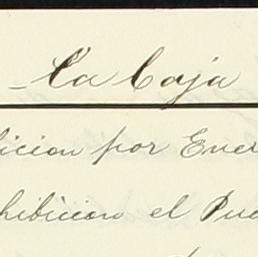 La Caja
icion por Ener
hibicion el Pue